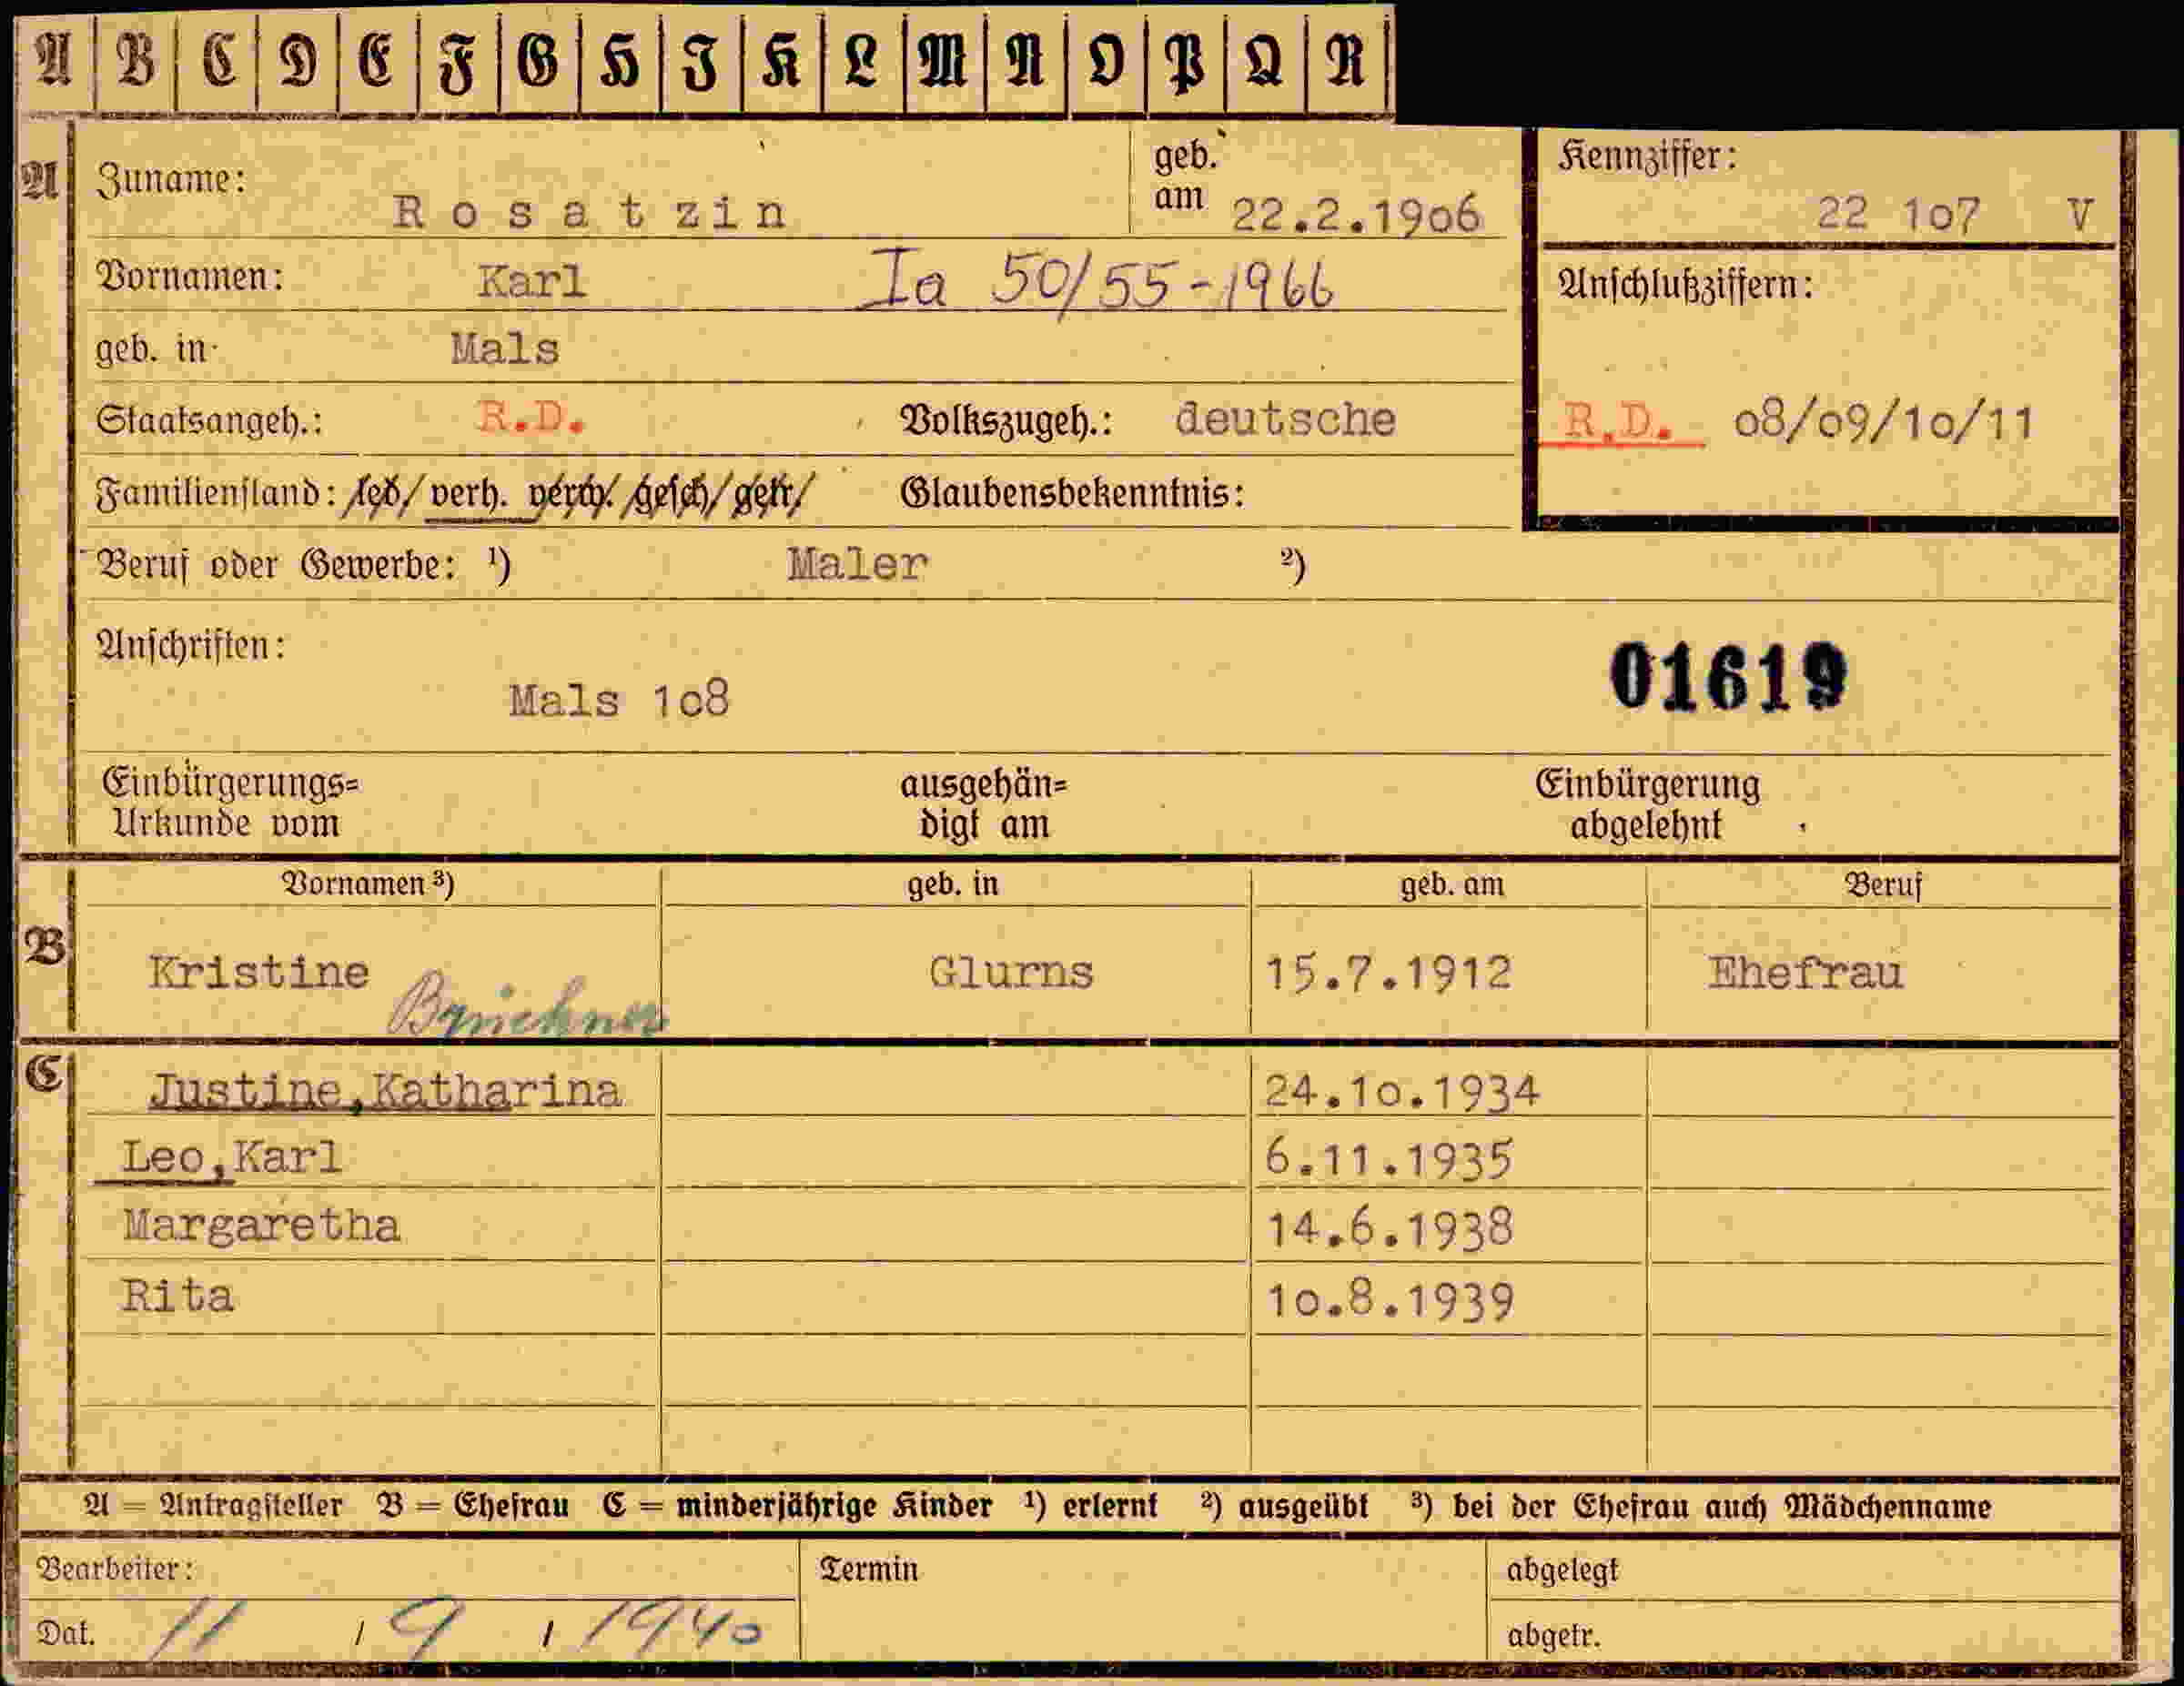 A B C D E F G H I K L M N O P Q R
A Zuname: Rosatzin geb. am 22.2.1906 Kennziffer: 22 107 V
Vornamen: Karl Ia 50/55-1966 Anschlußziffern:
geb. in Mals
Staatsangeh.: R.D. Volkszugeh.: deutsche R.D. 08/09/10/11
Familienstand: led/ verh. verw. /gesch/ getr/ Glaubensbekenntnis:
Beruf oder Gewerbe: ¹) Maler ²)
Anschriften:
01619
Mals 108
Einbürgerungs= ausgehän= Einbürgerung
Urkunde vom digt am abgelehnt
Vornamen ³) geb. in geb. am Beruf
B Kristine Glurns 15.7.1912 Ehefrau
C Justine, Katharina 24.10.1934
Leo, Karl 6.11.1935
Margaretha 14.6.1938
Rita 10.8.1939
A = Antragsteller B = Ehefrau C = minderjährige Kinder ¹) erlernt ²) ausgeübt ³) bei der Ehefrau auch Mädchenname
Bearbeiter: Termin abgelegt
Dat. 11 / 9 / 1940 abgetr.